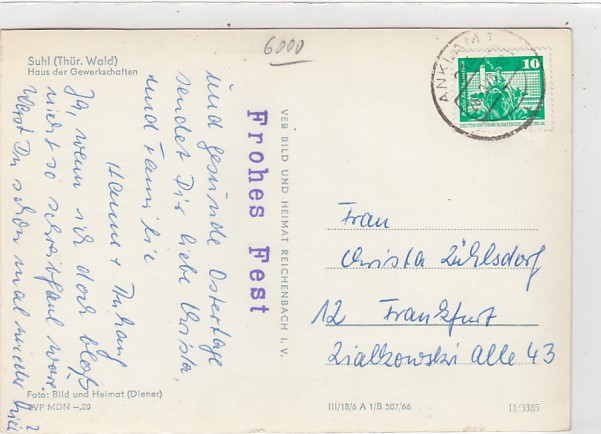 Suhl (Thür. Wald)
Haus der Gewerkschaften
6000
Frohes Fest
und gesunde Ostertage
sendet Dir liebe Christa,
und Familie
Hanna + Anhang
Ja, wenn ich doch bloß
nicht so schreibfaul wäre.
Warst Du schon mal wieder hier?
Foto: Bild und Heimat (Diener)
EVP MDN -,20
VEB BILD UND HEIMAT REICHENBACH I. V.
ANKLAM 1
10
Frau
Christa Zühlsdorf
12 Frankfurt
Zialkowski Alle 43
III/18/6 A 1/B 507/66
11/3385